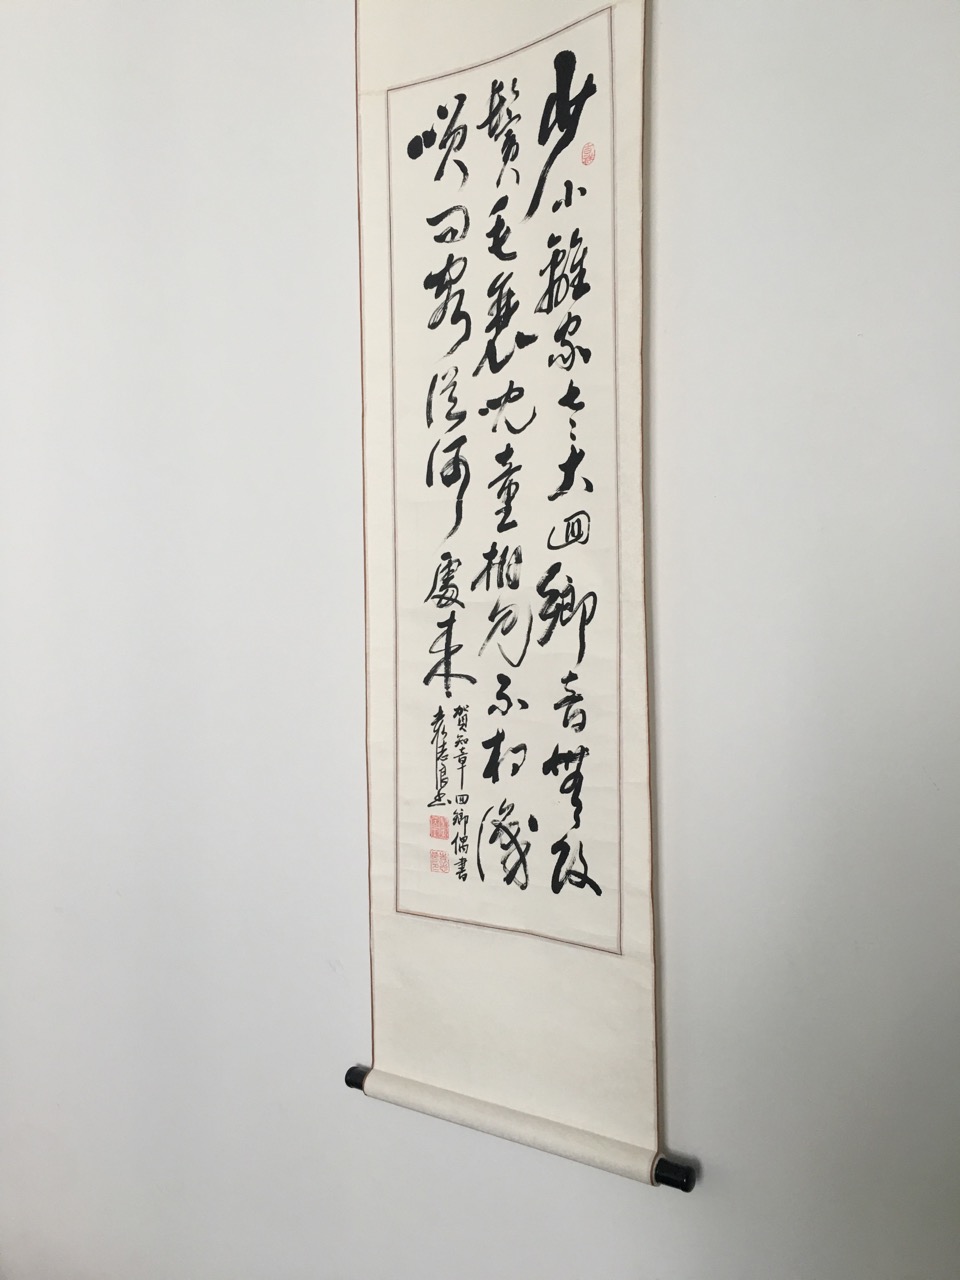 少小離家老大迴鄉音無改
鬢毛衰兒童相見不相識
咲問客從何處來
賀知章回鄉偶書